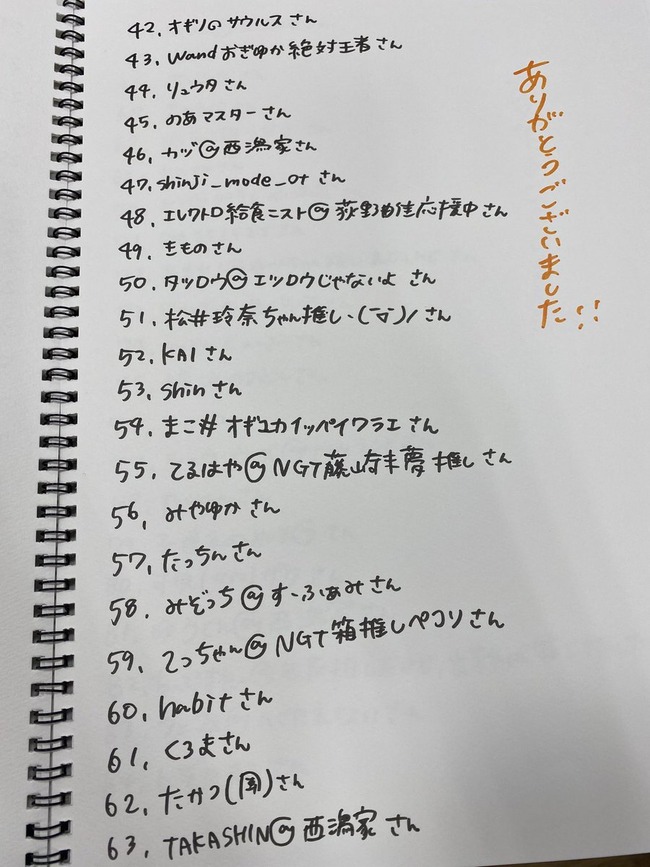 42. オギノのサウルスさん
43. Wandおぎゆか絶対王者さん
44. リュウタさん
45. のあマスターさん
46. カヅ@西潟家さん
47. shinji_mode_otさん
48. エレクトロ給食ニスト@荻野由佳応援中さん
49. きものさん
50. タツロウ@エツロウじゃないよ さん
51. 松井玲奈ちゃん推し、(￣▽￣)ノさん
52. KAIさん
53. shinさん
54. まこ#オギユカイッパイワラエさん
55. てるはや@NGT藤崎未夢推しさん
56. みやゆかさん
57. たっちんさん
58. みぞっち@すーふぁみさん
59. てっちゃん@NGT箱推しペコリさん
60. habitさん
61. くろまさん
62. たかつ()さん
63. TAKASHIN@西潟家さん
ありがとうございました!!